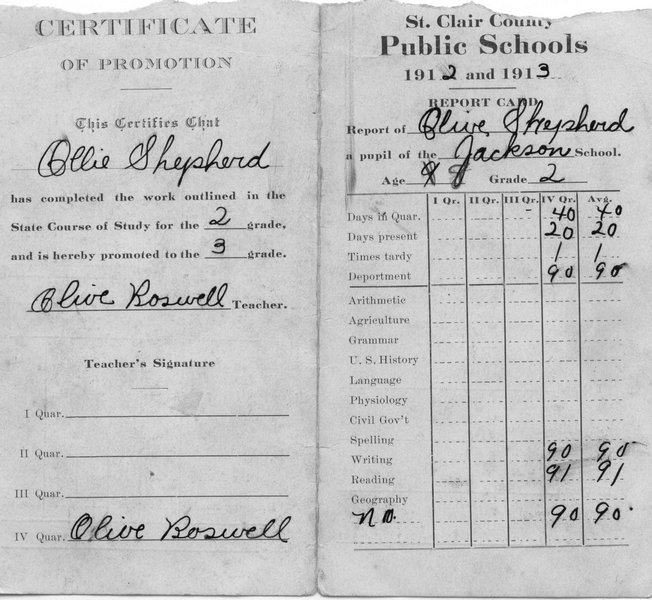 CERTIFICATE
OF PROMOTION
This Certifies That
Ollie Shepherd
has completed the work outlined in the
State Course of Study for the 2 grade,
and is hereby promoted to the 3 grade.
Olive Boswell Teacher.
Teacher's Signature
I Quar.
II Quar.
III Quar.
IV Quar. Olive Boswell
St. Clair County
Public Schools
1912 and 1913
REPORT CARD
Report of Olive Shepherd
a pupil of the Jackson School.
Age 8 Grade 2
I Qr. II Qr. III Qr. IV Qr. Avg.
Days in Quar. 40 40
Days present 20 20
Times tardy 1 1
Deportment 90 90
Arithmetic
Agriculture
Grammar
U. S. History
Language
Physiology
Civil Gov't
Spelling
Writing 90 90
Reading 91 91
Geography
90 90